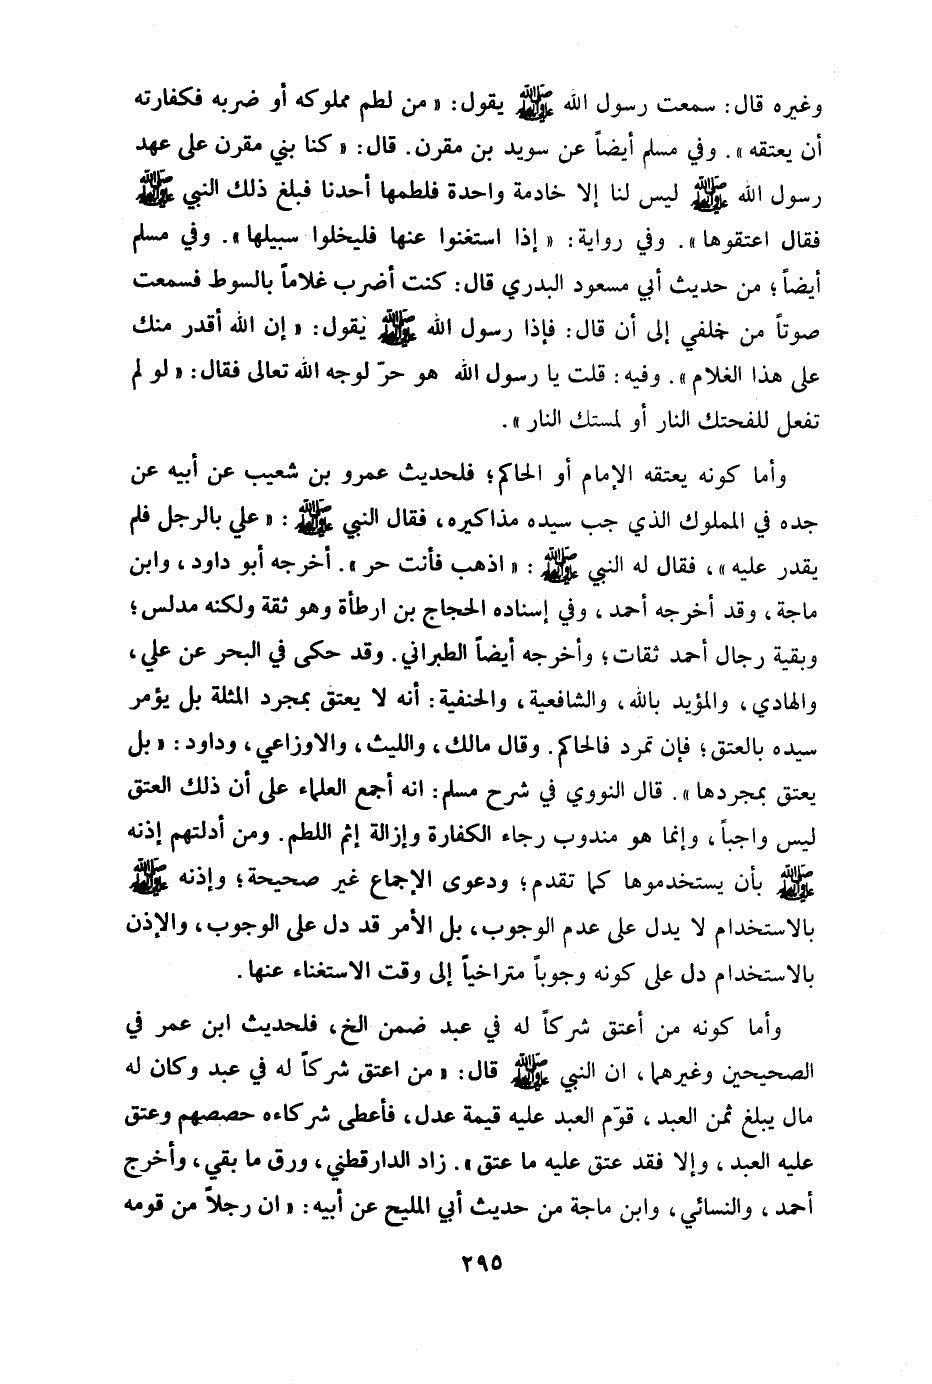 وغيره قال: سمعت رسول الله ﷺ يقول: «من لطم مملوكه أو ضربه فكفارته
أن يعتقه». وفي مسلم أيضاً عن سويد بن مقرن. قال: «كنا بني مقرن على عهد
رسول الله ﷺ ليس لنا إلا خادمة واحدة فلطمها أحدنا فبلغ ذلك النبي ﷺ
فقال اعتقوها». وفي رواية: «إذا استغنوا عنها فليخلوا سبيلها». وفي مسلم
أيضاً؛ من حديث أبي مسعود البدري قال: كنت أضرب غلاماً بالسوط فسمعت
صوتاً من خلفي إلى أن قال: فإذا رسول الله ﷺ يقول: «إن الله أقدر منك
على هذا الغلام». وفيه: قلت يا رسول الله هو حرّ لوجه الله تعالى فقال: «لو لم
تفعل للفحتك النار أو لمستك النار».
وأما كونه يعتقه الإمام أو الحاكم؛ فلحديث عمرو بن شعيب عن أبيه عن
جده في المملوك الذي جب سيده مذاكيره، فقال النبي ﷺ: «علي بالرجل فلم
يقدر عليه»، فقال له النبي ﷺ: «اذهب فأنت حر». أخرجه أبو داود، وابن
ماجة، وقد أخرجه أحمد، وفي إسناده الحجاج بن ارطأة وهو ثقة ولكنه مدلس؛
وبقية رجال أحمد ثقات؛ وأخرجه أيضاً الطبراني. وقد حكى في البحر عن علي،
والهادي، والمؤيد بالله، والشافعية، والحنفية: أنه لا يعتق بمجرد المثلة بل يؤمر
سيده بالعتق؛ فإن تمرد فالحاكم. وقال مالك، والليث، والاوزاعي، وداود: «بل
يعتق بمجردها». قال النووي في شرح مسلم: انه أجمع العلماء على أن ذلك العتق
ليس واجباً، وإنما هو مندوب رجاء الكفارة وإزالة إثم اللطم. ومن أدلتهم إذنه
ﷺ بأن يستخدموها كما تقدم؛ ودعوى الإجماع غير صحيحة؛ وإذنه ﷺ
بالاستخدام لا يدل على عدم الوجوب، بل الأمر قد دل على الوجوب، والإذن
بالاستخدام دل على كونه وجوباً متراخياً إلى وقت الاستغناء عنها.
وأما كونه من أعتق شركاً له في عبد ضمن الخ، فلحديث ابن عمر في
الصحيحين وغيرهما، ان النبي ﷺ قال: «من اعتق شركاً له في عبد وكان له
مال يبلغ ثمن العبد، قوّم العبد عليه قيمة عدل، فأعطى شركاءه حصصهم وعتق
عليه العبد، وإلا فقد عتق عليه ما عتق». زاد الدارقطني، ورق ما بقي، وأخرج
أحمد، والنسائي، وابن ماجة من حديث أبي المليح عن أبيه: «ان رجلاً من قومه
٢٩٥